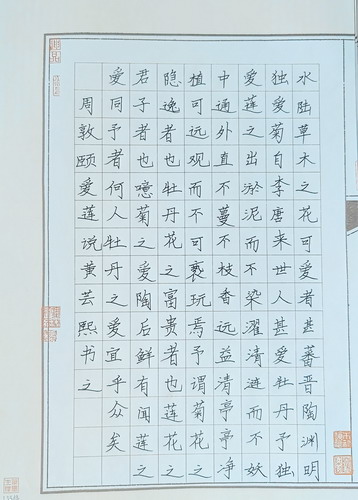 水陆草木之花可爱者甚蕃晋陶渊明
独爱菊自李唐来世人甚爱牡丹予独
爱莲之出淤泥而不染濯清涟而不妖
中通外直不蔓不枝香远益清亭亭净
植可远观而不可亵玩焉予谓菊花之
隐逸者也牡丹花之富贵者也莲花之
君子者也噫菊之爱陶后鲜有闻莲之
爱同予者何人牡丹之爱宜乎众矣
周敦颐爱莲说黄芸熙书之